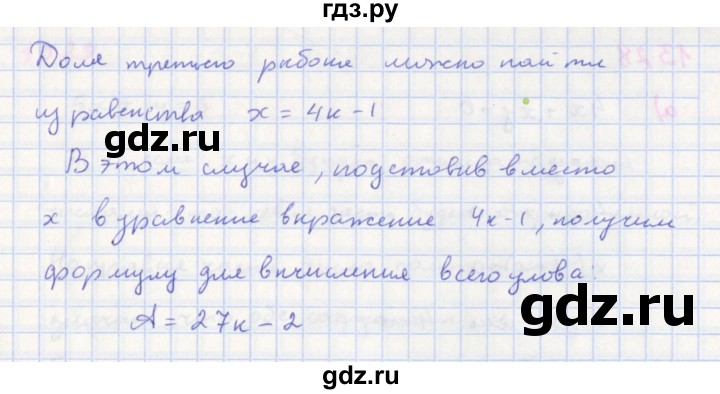 гдз.ру
Доля третьего рыбока можно найти
из равенства x = 4к - 1
В этом случае, подстовив вместо
x в уравнение выражение 4к-1, получим
формулу для вычисления всего улова:
A = 27к - 2
gdz.ru
gdz.ru
gdz.ru
gdz.ru